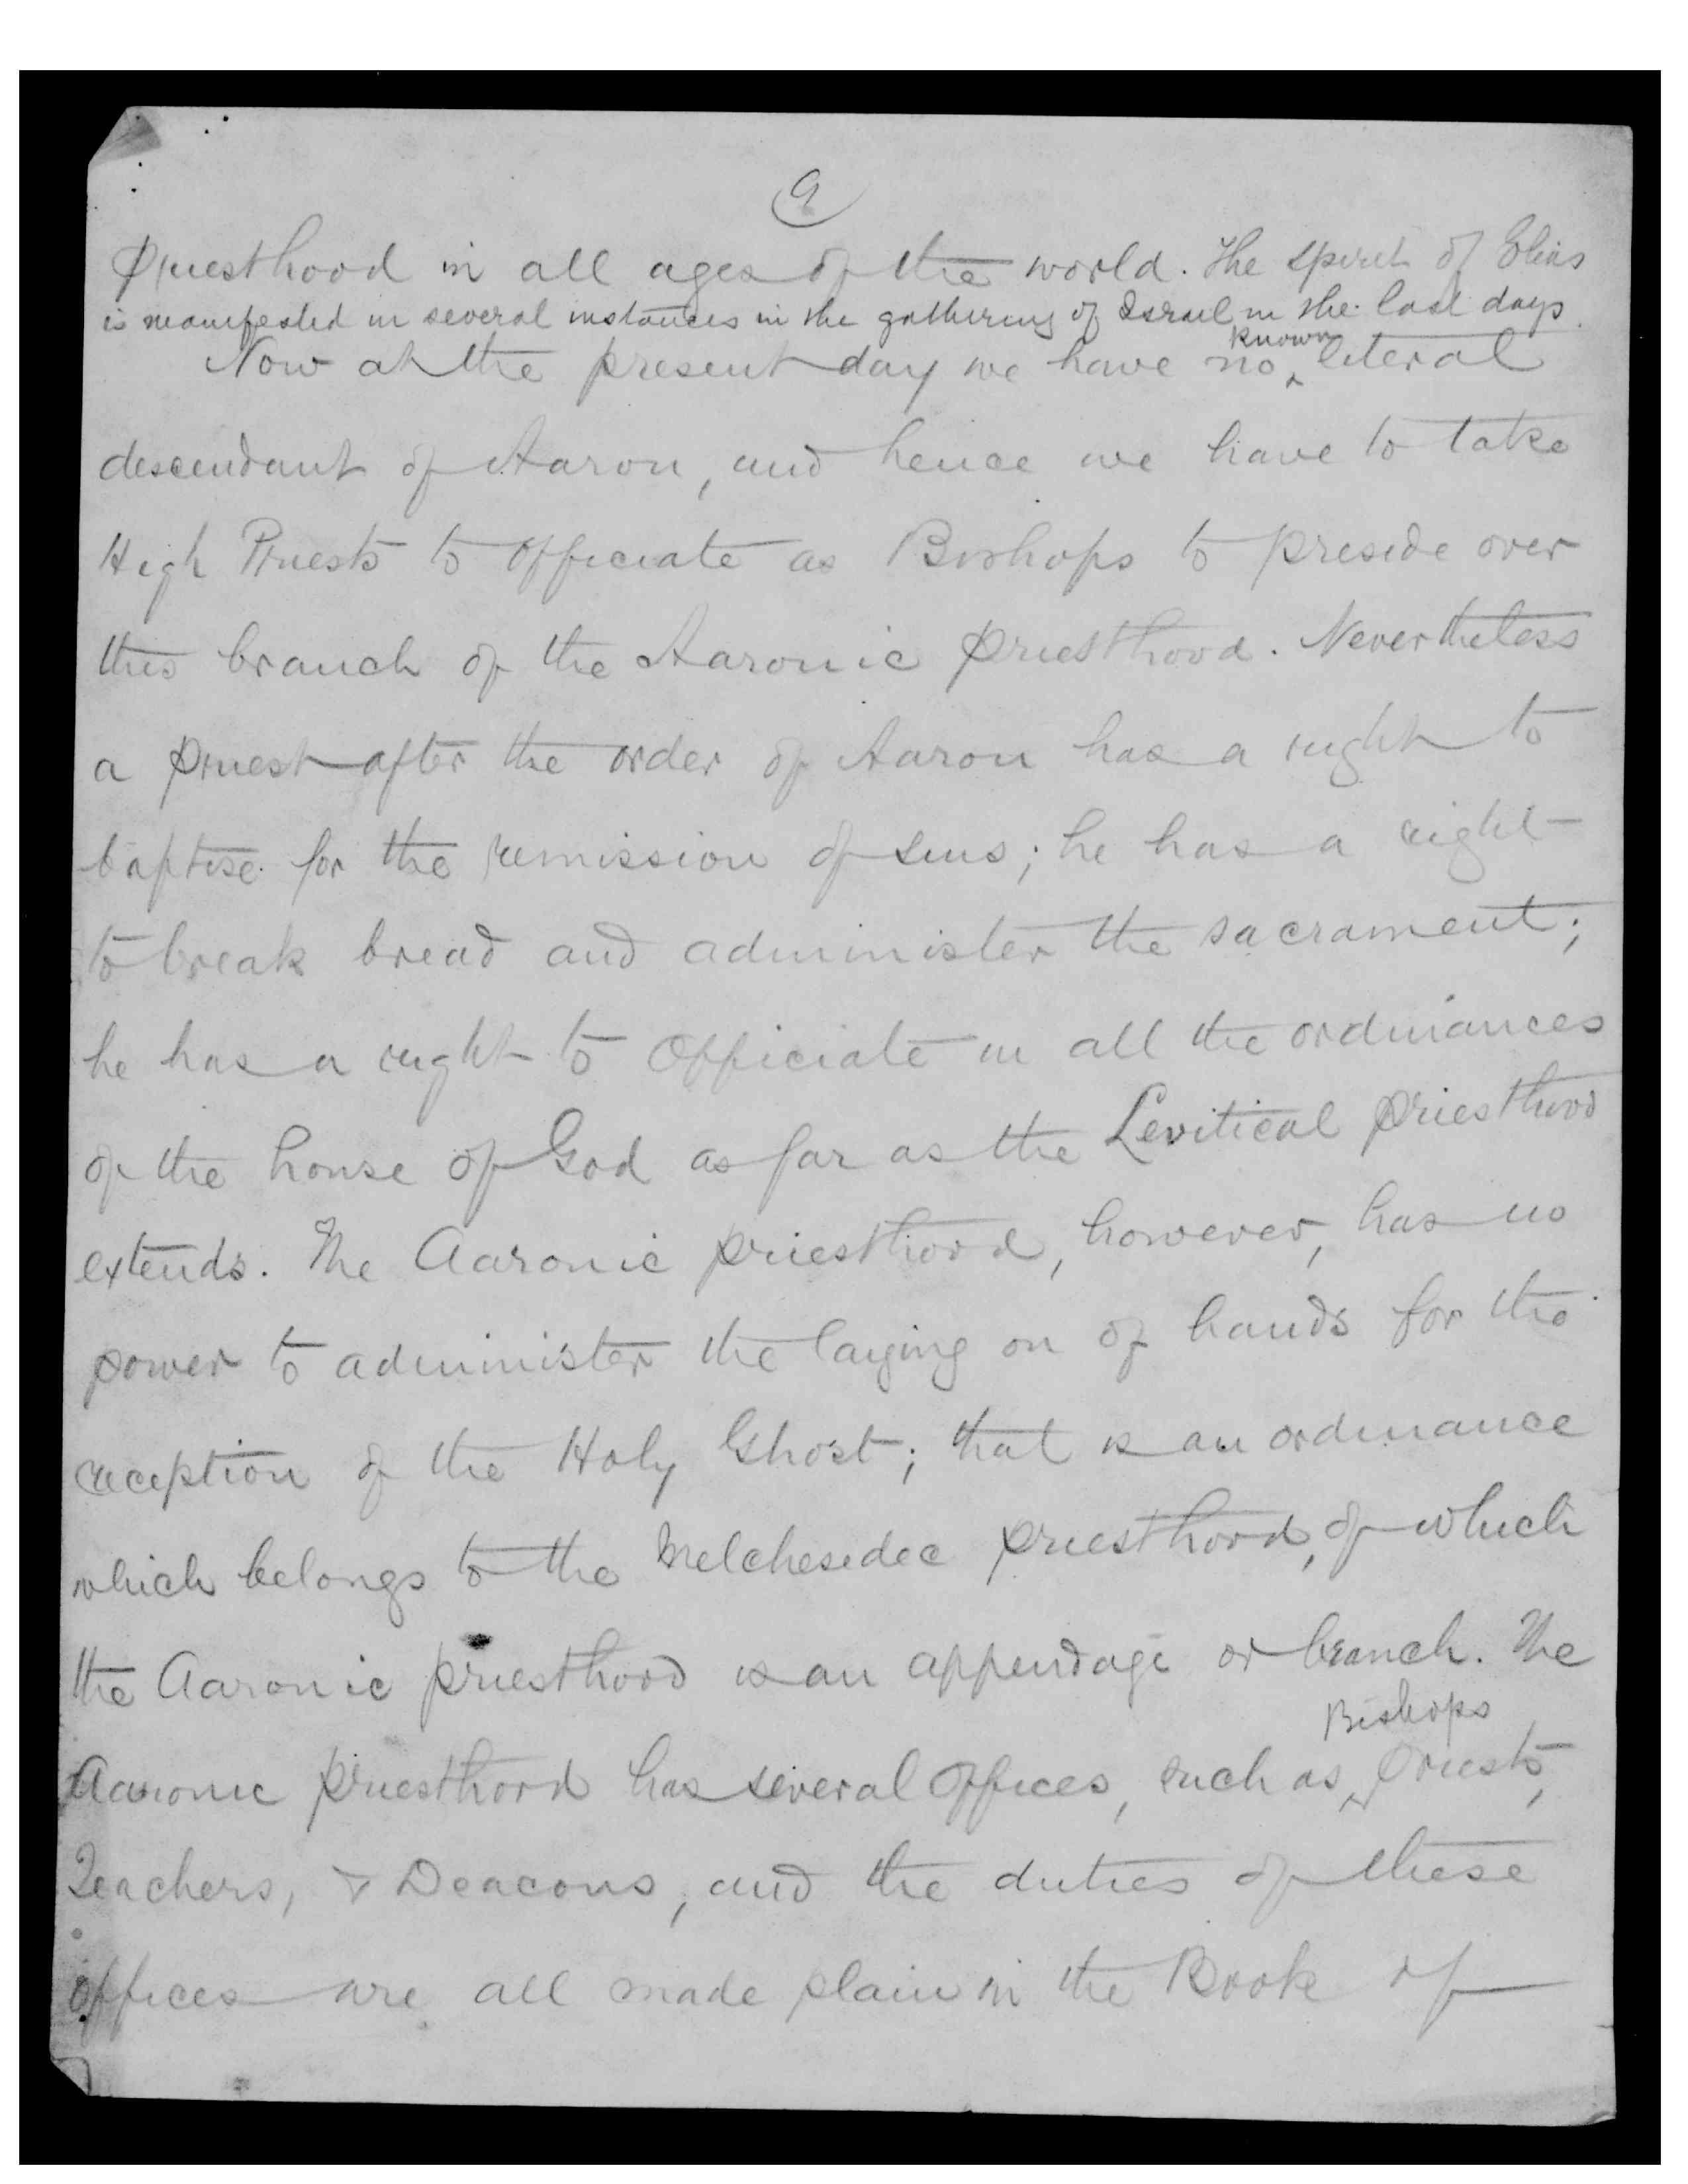 9
Priesthood in all ages of the world. The spirit of Elias
is manifested in several instances in the gathering of Israel in the last days.
known
Now at the present day we have no ‸ literal
descendant of Aaron, and hence we have to take
High Priests to officiate as Bishops to preside over
this branch of the Aaronic Priesthood. Nevertheless
a priest after the order of Aaron has a right to
baptise for the remission of sins; he has a right
to break bread and administer the sacrament;
he has a right to officiate in all the ordinances
of the house of God as far as the Levitical Priesthood
extends. The Aaronic Priesthood, however, has no
power to administer the laying on of hands for the
reception of the Holy Ghost; that is an ordinance
which belongs to the Melchesedec Priesthood, of which
the Aaronic Priesthood is an appendage or branch. The
Bishops
Aaronic Priesthood has several offices, such as ‸ Priests,
Teachers, & Deacons, and the duties of these
offices are all made plain in the Book of